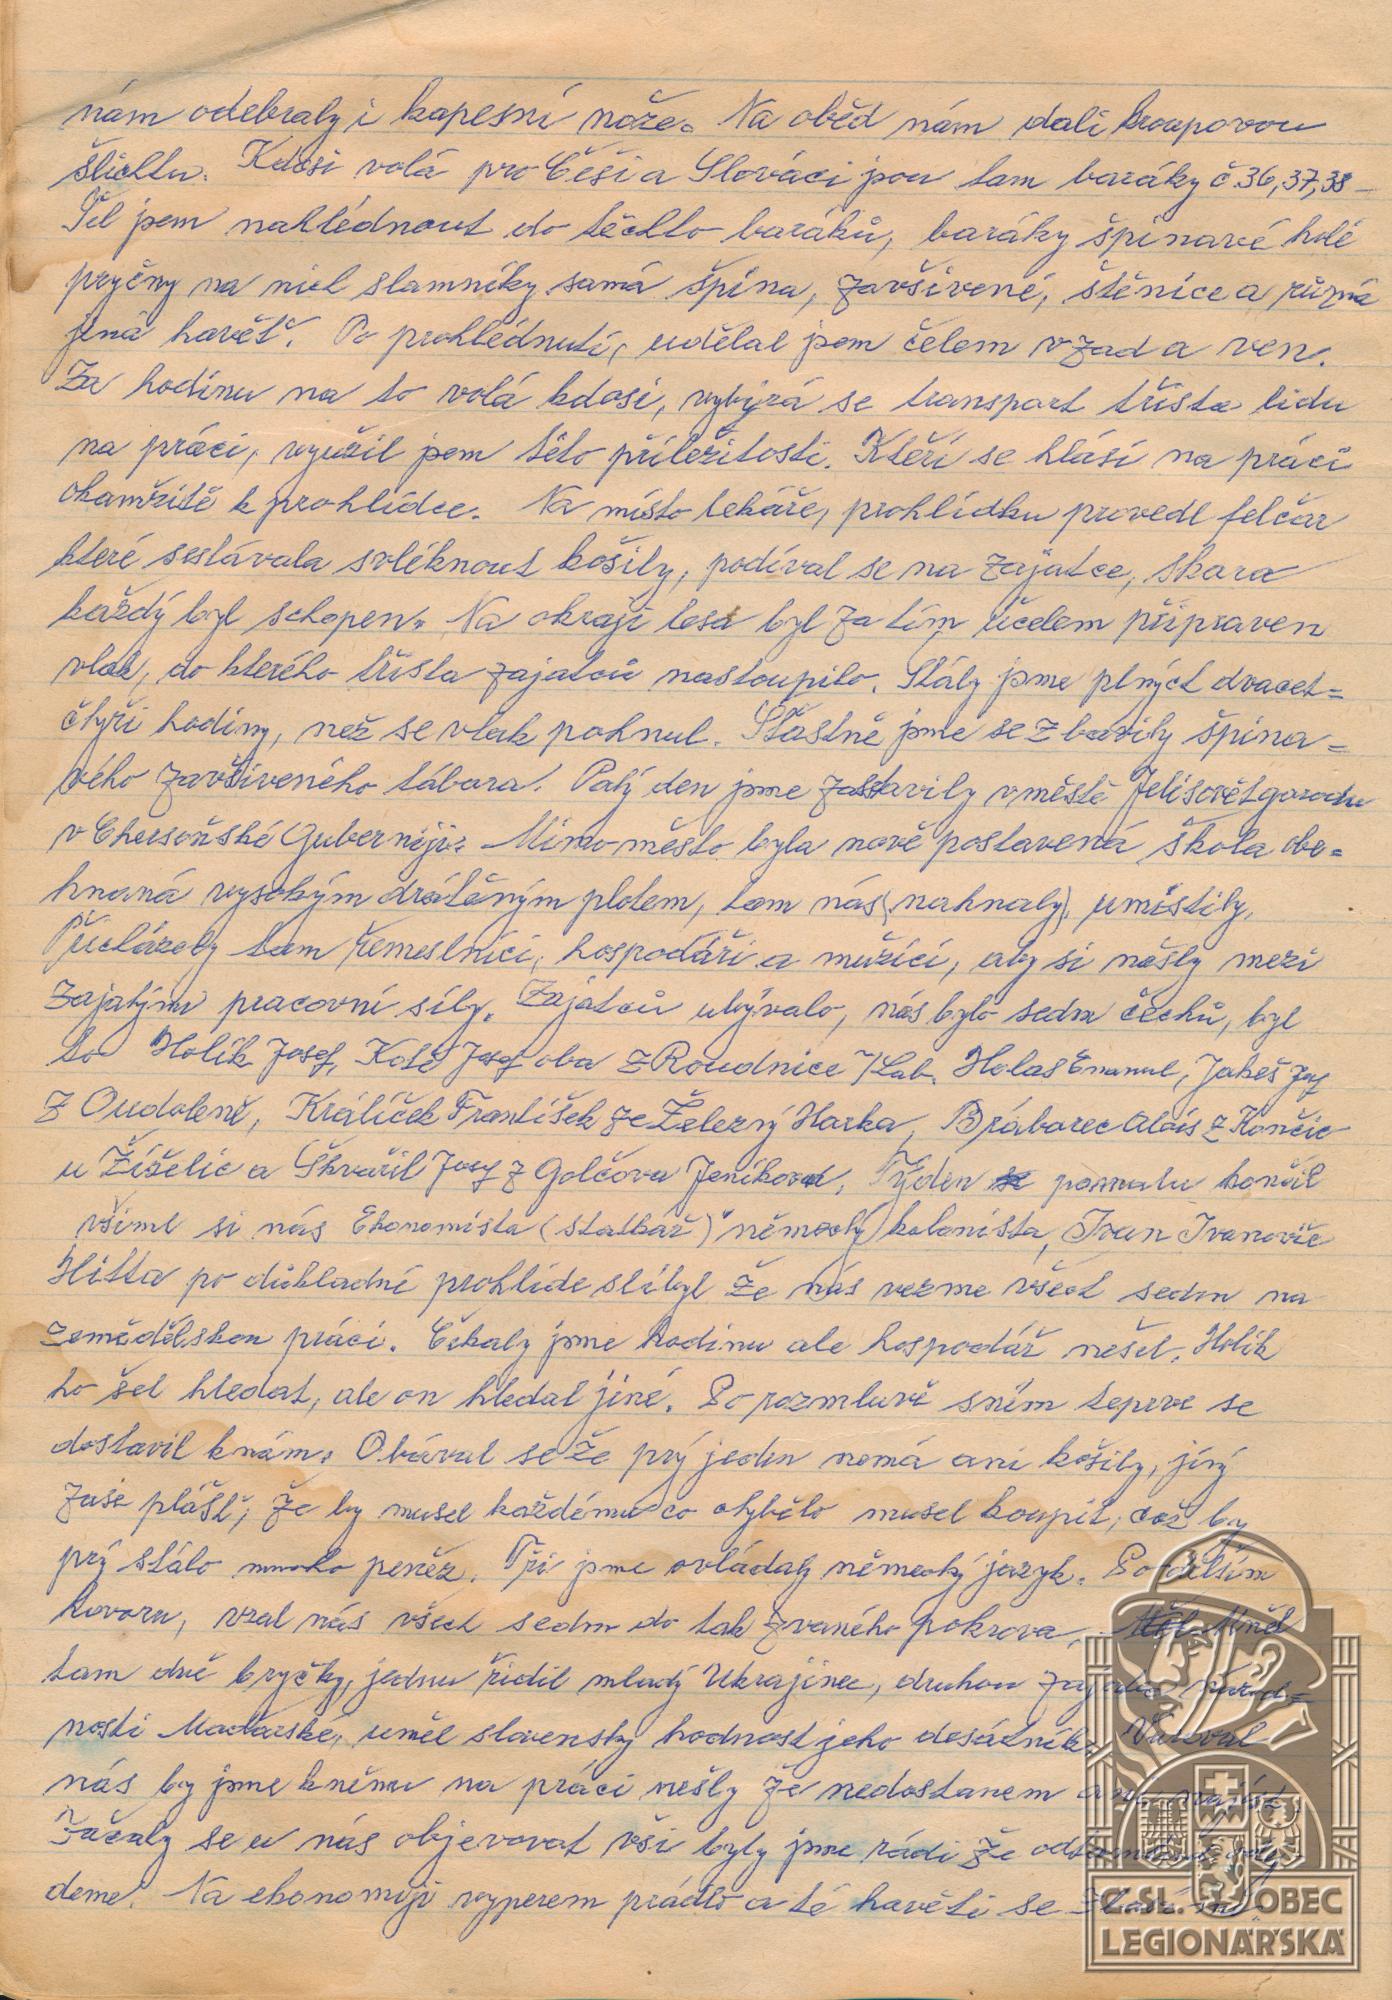 nám odebraly i kapesní nože. Na oběd nám dali kroupovou
šlichtu. Kdosi volá pro Češi a Slováci jsou tam baráky č 36, 37, 38 –
Šel jsem nahlédnout do těchto baráků, baráky špinavé holé
pryčny na nich slamníky samá špína, zavšivené, štěnice a různá
jiná havěť. Po prohlédnutí, udělal jsem čelem vzad a ven.
Za hodinu na to volá kdosi, vybírá se transport třista lidu
na práci, využil jsem této příležitosti. Kteří se hlásí na práci
okamžitě k prohlídce. Na místo lekáře, prohlídku provedl felčar
které sestávala svléknout košily, podíval se na zajatce, skara
každý byl schopen. Na okraji lesa byl za tím účelem připraven
vlak, do kterého třista zajatců nastoupilo. Stály jsme plných dvacet=
čtyři hodiny, než se vlak pohnul. Šťastně jsme se zbavily špina=
vého zavšiveného tábora. Patý den jsme zastavily v městě Jelisovětgorodu
v Chersoňské Guberniji. Mimo město byla nově postavená škola obe=
hnaná vysokým drátěným plotem, tam nás (nahnaly) umístily.
Přicházely tam řemeslníci, hospodáři a mužíci, aby si našly mezi
zajatými pracovní síly. Zajatců ubývalo, nás bylo sedm čechů, byl
to Holík Josef, Kolč Josef oba z Roudnice n/Lab. Holas Emanuel, Jakeš Josf
z Oudoleně, Králíček František ze Železný Horka, Bráborec Alois z Končic
u Žíželic a Škvařil Josef z Golčova Jeníkova, Týden se pomalu končil
všiml si nás Ekonomista (statkář) německý kolonista, Ivan Ivanovič
Hitta po důkladné prohlíde slíbyl že nás vezme všech sedm na
zemědělskou práci. Čekaly jsme hodinu ale hospodář nešel, Holík
ho šel hledat, ale on hledal jiné. Po rozmluvě sním teprve se
dostavil k nám. Obával se že prý jeden nemá ani košily, jiný
zase plášť, že by musel každému co chybělo musel koupit, což by
prý stálo mnoho peněz. Tři jsme ovládaly německý jazyk. Po delším
hovoru, vzal nás všech sedm do tak zvaného pokrova. Měl
tam dvě bryčky, jednu řídil mladý Ukrajinec, druhou zajatec národ=
nosti Maďarské, uměl slovensky hodnost jeho desátník. Varoval
nás by jsme k němu na práci nešly že nedostanem ani najíst.
Začaly se u nás objevovat vši byly jsme rádi že
deme. Na ekonomiji vyperem prádlo a té havěti se
Č.SL. OBEC
LEGIONÁŘSKÁ